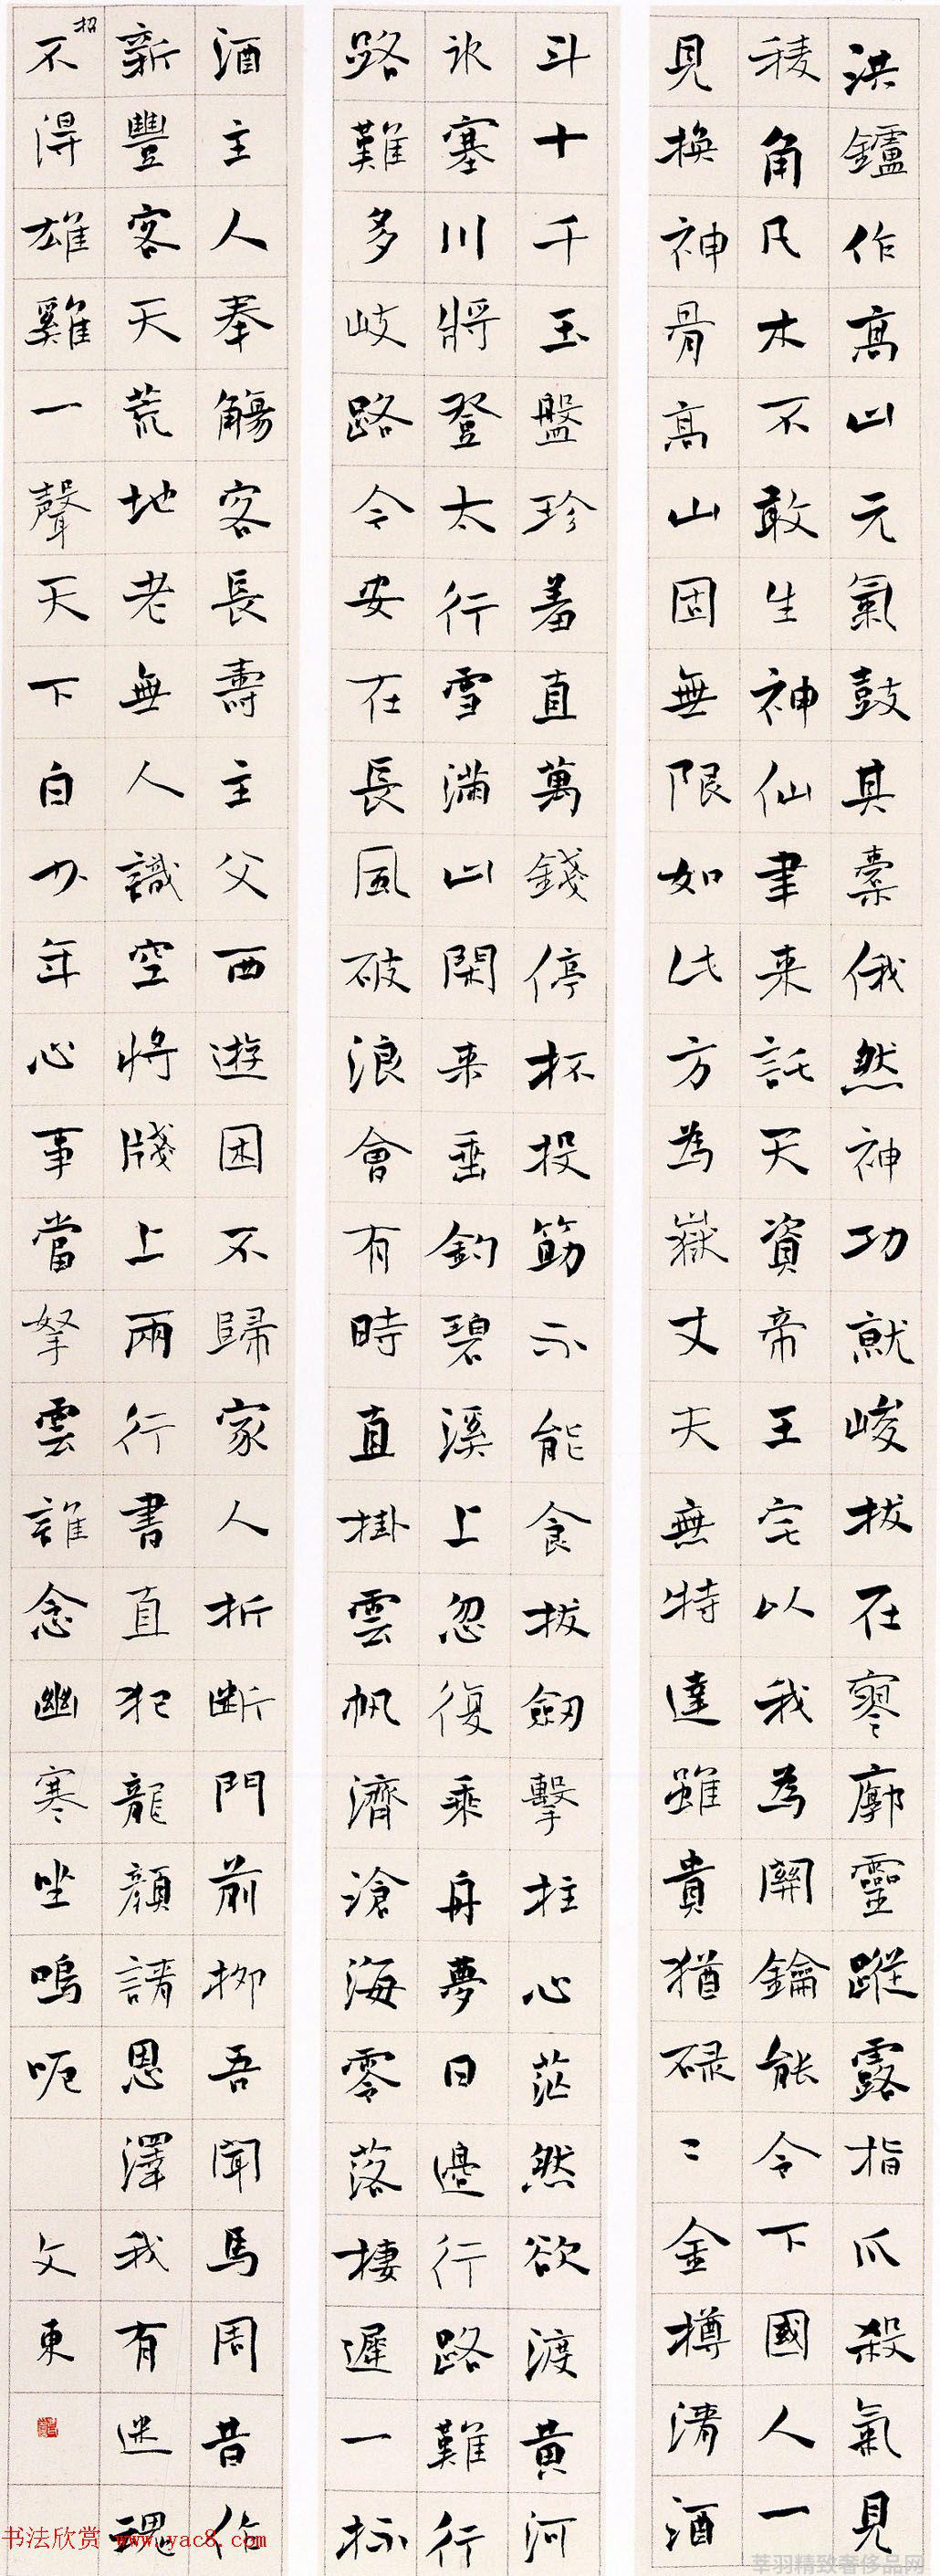 洪鑪作高山元氣鼓其橐俄然神功就峻拔在寥廓靈蹤露指爪殺氣見
稜角凡木不敢生神仙聿来託天資帝王宅以我為關鑰能令下國人一
見換神骨高山固無限如此方為嶽丈夫無特達雖貴猶碌〻金樽清酒
斗十千玉盤珍羞直萬錢停杯投筯不能食拔劒擊柱心茫然欲渡黄河
氷塞川將登太行雪滿山閑来垂釣碧溪上忽復乘舟夢日邊行路難行
路難多岐路今安在長風破浪會有時直掛雲帆濟滄海零落棲遲一杯
酒主人奉觴客長壽主父西遊困不歸家人折斷門前柳吾聞馬周昔作
新豐客天荒地老無人識空將牋上兩行書直犯龍顏請恩澤我有迷魂
招
不得雄雞一聲天下白少年心事當拏雲誰念幽寒坐嗚呃
文東
书法欣赏 www.yac8.com
莘羽精致奢侈品网